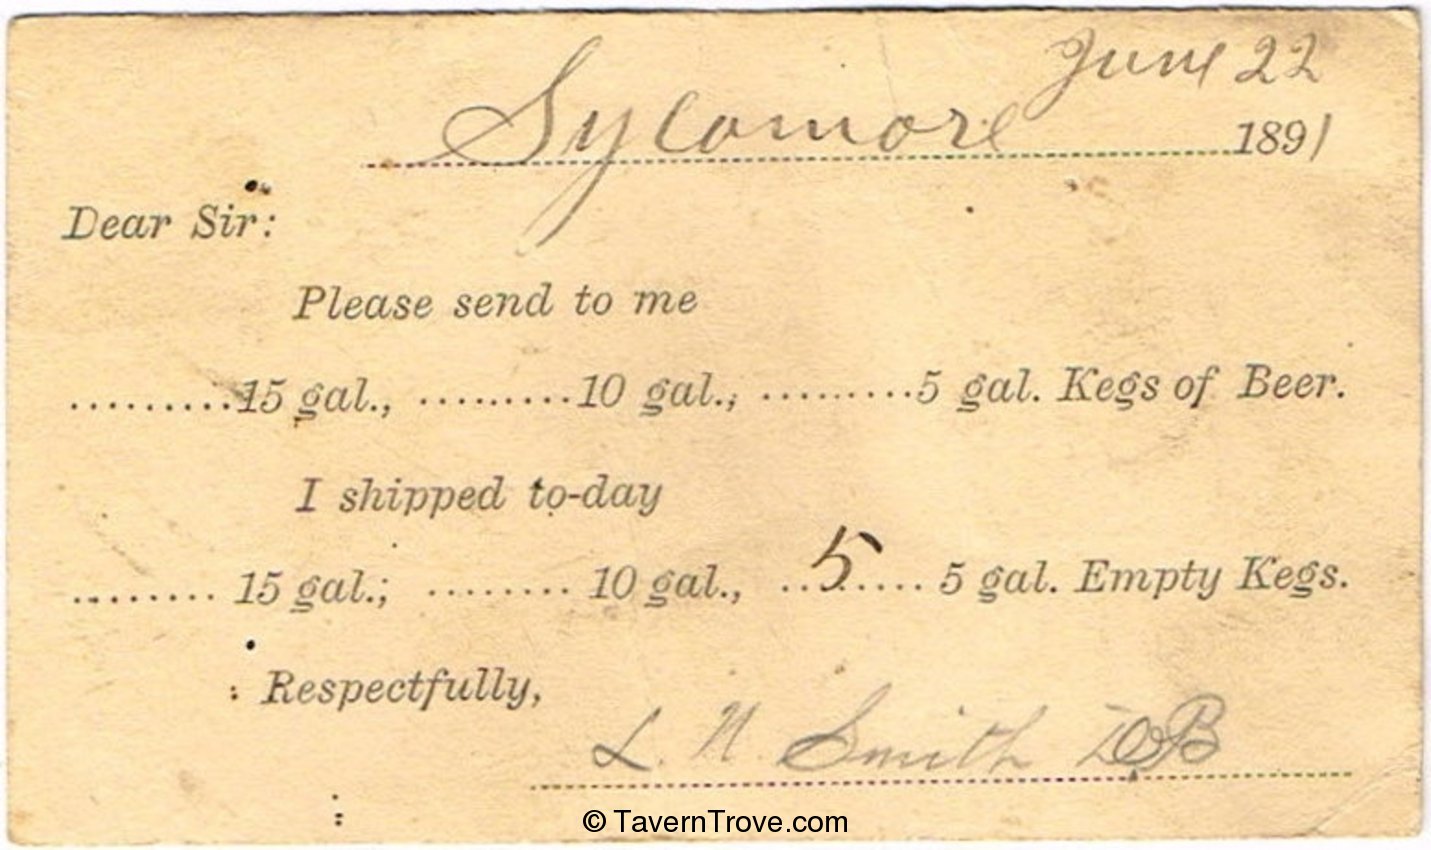 June 22
Sycamore 1891
Dear Sir:
Please send to me
.........15 gal., .........10 gal., .........5 gal. Kegs of Beer.
I shipped to-day
........ 15 gal.; ........ 10 gal., ..5.... 5 gal. Empty Kegs.
Respectfully,
L. N. Smith
© TavernTrove.com